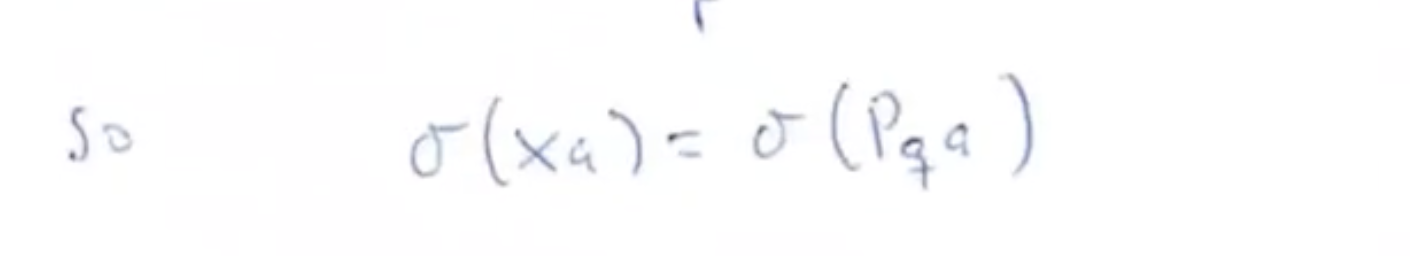 So σ(xa) = σ(P_q a)